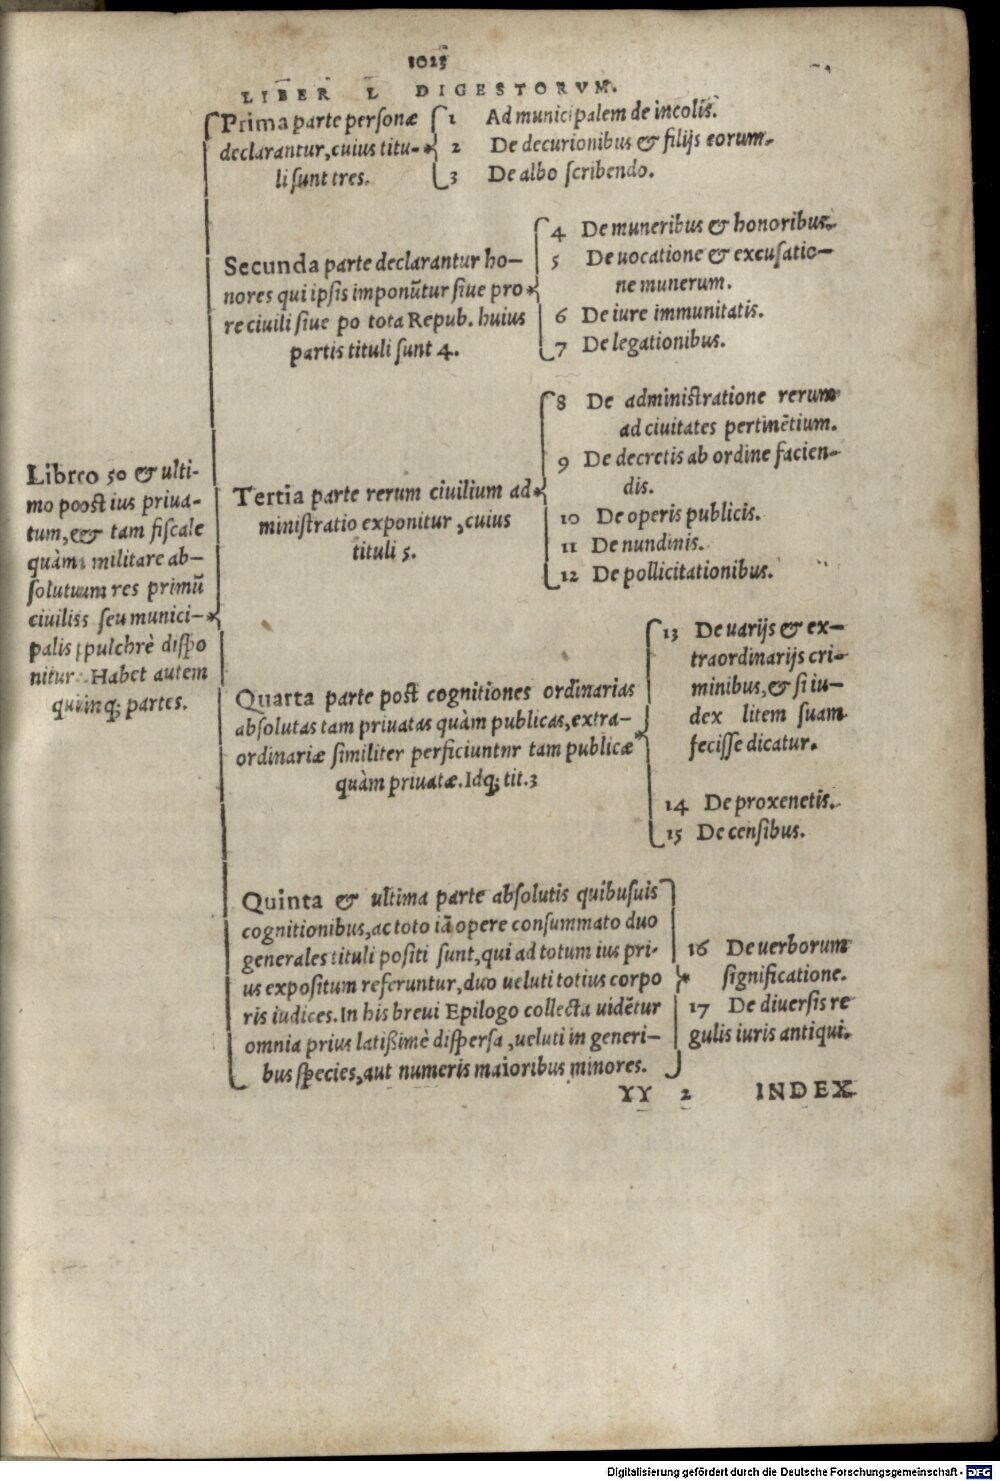 1025
LIBER L DIGESTORVM.
Libreo 50 & ulti-
mo poost ius priua-
tum, e& tam fiscale
quàm militare ab-
solutuum res primũ
ciuiliss seu munici-
palis pulchrè dispo
nitur. Habet autem
quuinq; partes.
Prima parte personæ
declarantur, cuius titu-
li sunt tres.
1 Ad municipalem de incolis.
2 De decurionibus & filijs eorum.
3 De albo scribendo.
Secunda parte declarantur ho-
nores qui ipsis imponũtur siue pro
re ciuili siue po tota Repub. huius
partis tituli sunt 4.
4 De muneribus & honoribus.
5 De uocatione & excusatio-
ne munerum.
6 De iure immunitatis.
7 De legationibus.
Tertia parte rerum ciuilium ad-
ministratio exponitur, cuius
tituli 5.
8 De administratione rerum
ad ciuitates pertinẽtium.
9 De decretis ab ordine facien-
dis.
10 De operis publicis.
11 De nundinis.
12 De pollicitationibus.
Quarta parte post cognitiones ordinarias
absolutas tam priuatas quàm publicas, extra-
ordinariæ similiter perficiuntnr tam publicæ
quàm priuatæ. Idq; tit. 3
13 De uarijs & ex-
traordinarijs cri-
minibus, & si iu-
dex litem suam
fecisse dicatur.
14 De proxenetis.
15 De censibus.
Quinta & ultima parte absolutis quibusuis
cognitionibus, ac toto iã opere consummato duo
generales tituli positi sunt, qui ad totum ius pri-
us expositum referuntur, duo ueluti totius corpo
ris iudices. In his breui Epilogo collecta uidẽtur
omnia prius latißimè dispersa, ueluti in generi-
bus species, aut numeris maioribus minores.
16 De uerborum
significatione.
17 De diuersis re
gulis iuris antiqui.
YY 2 INDEX
Digitalisierung gefördert durch die Deutsche Forschungsgemeinschaft - DFG